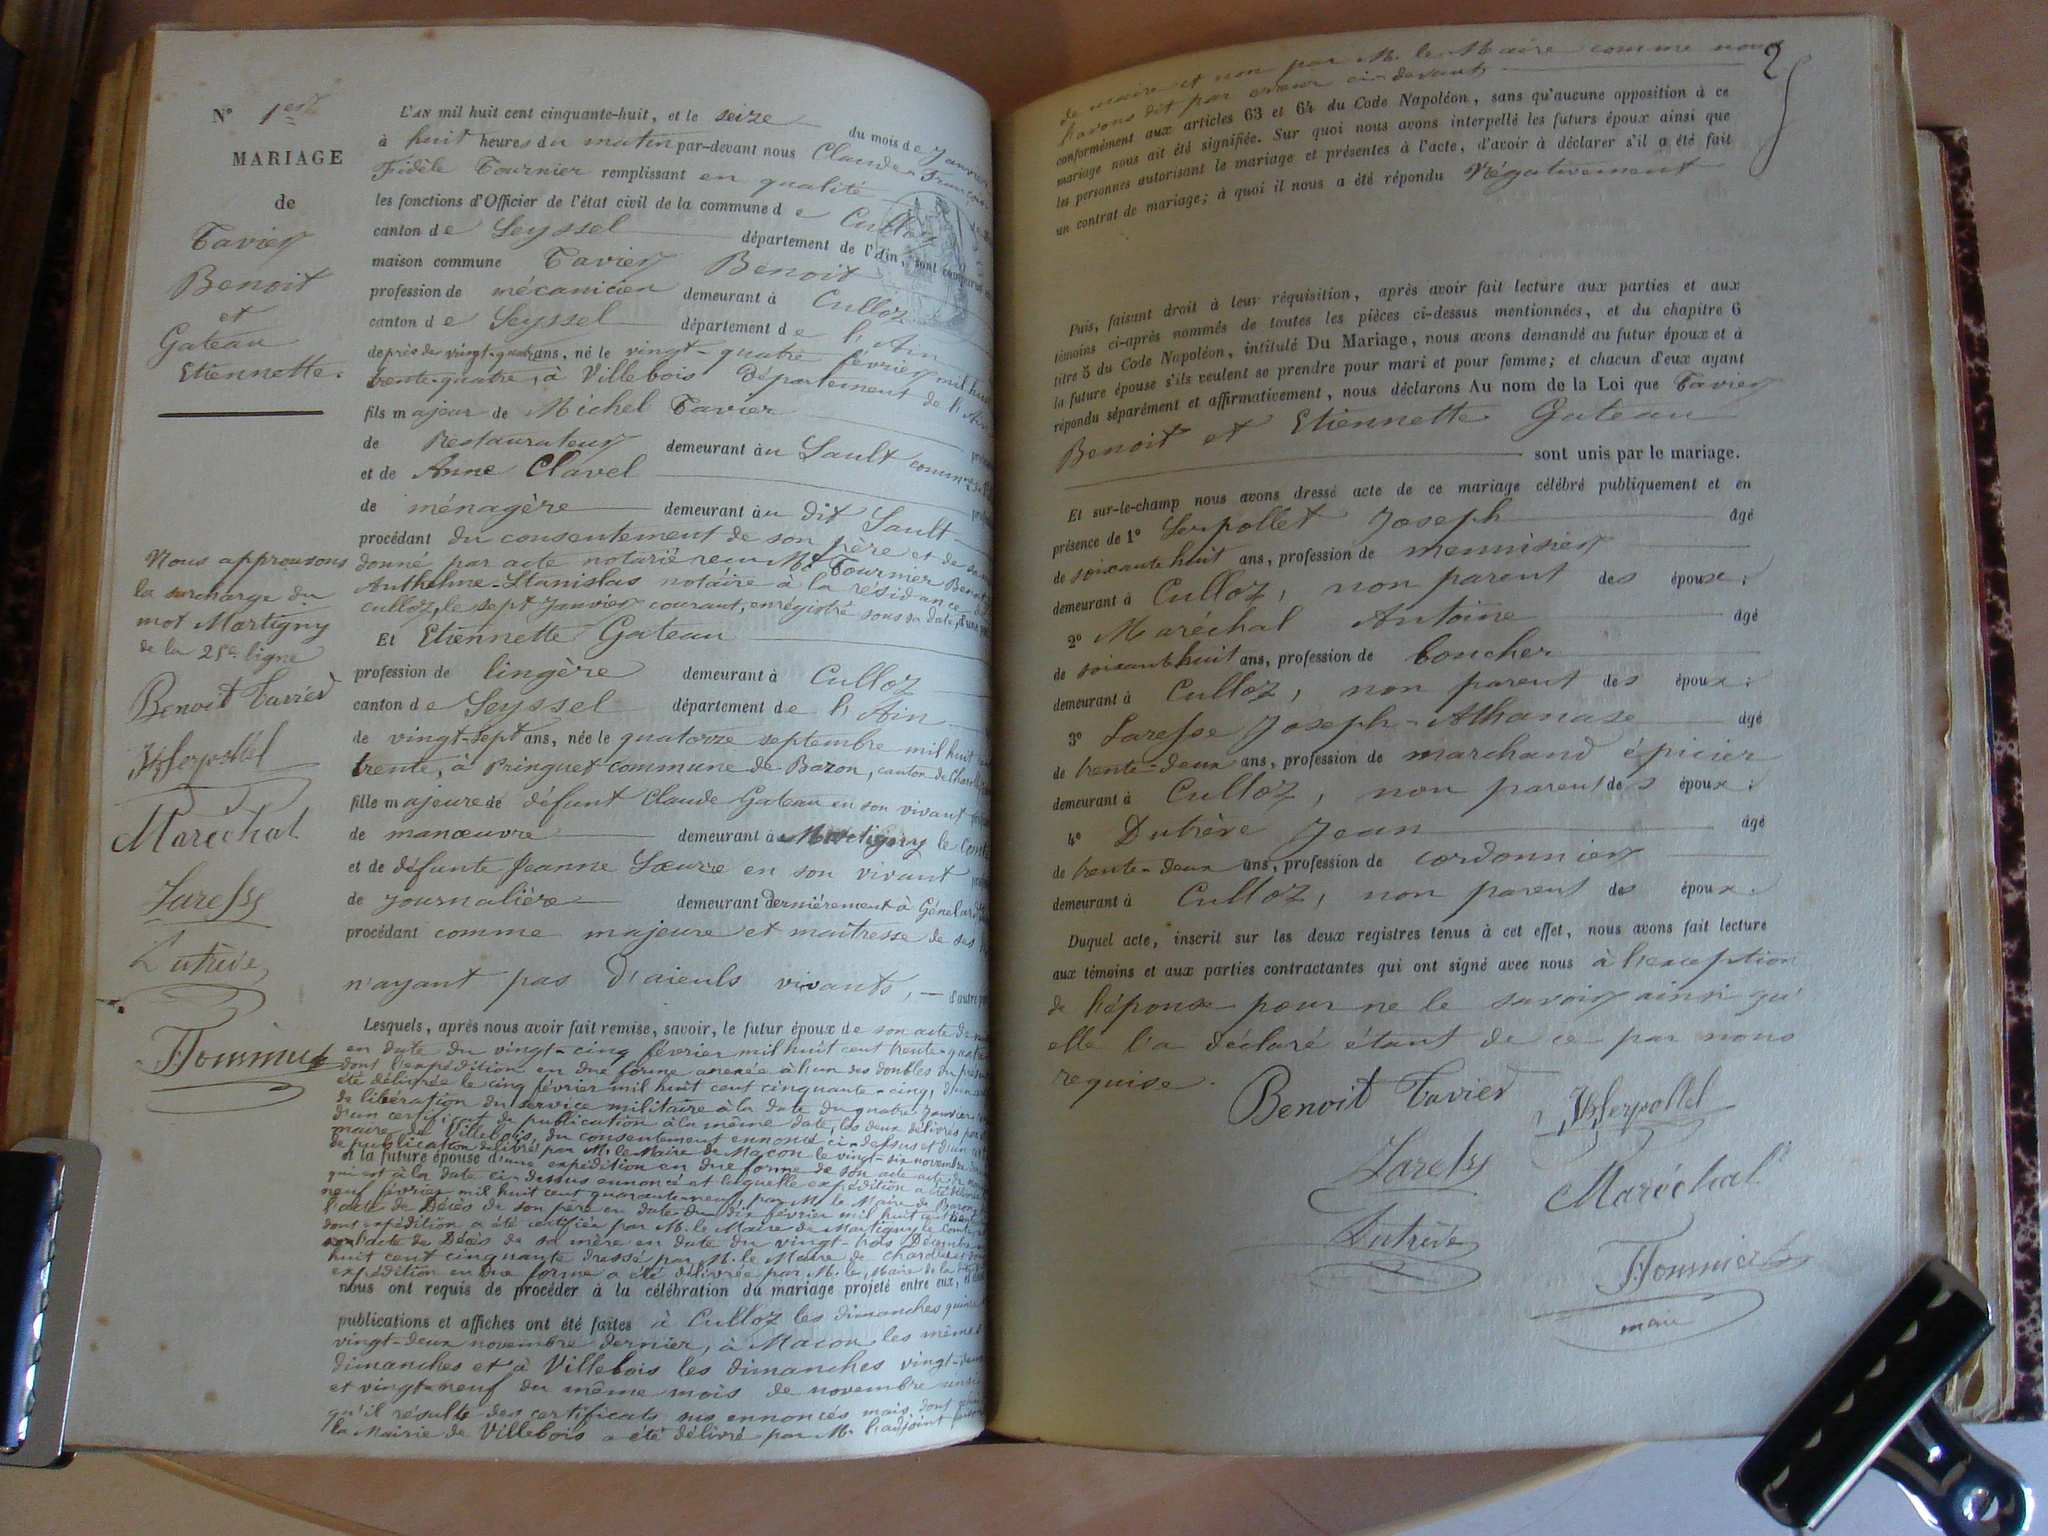 N° 1er
MARIAGE
de
Tavier
Benoit
et
Gateau
Etiennette.
Nous approuvons
la surcharge du
mot Martigny
de la 25e ligne
Benoit Tavier
JhSerpollet
Maréchal
Laresse
Dutrève
Tournier
L'AN mil huit cent cinquante-huit, et le seize du mois de Janvier
à huit heures du matin par-devant nous Claude-François
Fidèle Tournier remplissant en qualité
les fonctions d'Officier de l'état civil de la commune de Culloz
canton de Seyssel département de l'Ain, sont comparus
maison commune Tavier Benoit
profession de mécanicien demeurant à Culloz
canton de Seyssel département de l'Ain
de près de vingt-quatre ans, né le vingt-quatre février mil huit
trente-quatre, à Villebois Département de l'Ain
fils majeur de Michel Tavier
de restaurateur demeurant au Sault
et de Anne Clavel
de ménagère demeurant au dit Sault
procédant du consentement de son père et de sa
donné par acte notarié reçu Me Tournier Benoit
Anthelme-Stanislas notaire à la résidance de
Culloz, le sept Janvier courant, enrégistré sous sa date,
Et Etiennette Gateau
profession de lingère demeurant à Culloz
canton de Seyssel département de l'Ain
de vingt-sept ans, née le quatorze septembre mil huit
trente, à Pringuet commune de Baron, canton de
fille majeure de défunt Claude Gateau en son vivant
de manœuvre demeurant à Martigny le Comte
et de défunte Jeanne Lœuvre en son vivant
de journalière demeurant dernièrement à Génelard
procédant comme majeure et maitresse de ses
n'ayant pas d'aieuls vivants, — d'autre
Lesquels, après nous avoir fait remise, savoir, le futur époux de son acte de
en date du vingt-cinq février mil huit cent trente-quatre
dont l'expédition en due forme anexée à l'un des doubles du
été délivrée le cinq février mil huit cent cinquante-cinq,
de libération du service militaire à la date du quatre Janvier
d'un certificat de publication à la même date, les deux délivrés par
maire de Villebois, du consentement ennoncé ci-dessus et d'un
de publication délivré par M. le Maire de Macon le vingt-six novembre
et la future épouse d'une expédition en due forme de son acte de
qui est à la date ci-dessus ennoncé et laquelle expédition a été délivrée
neuf février mil huit cent quarante-neuf, par M. le Maire de Baron
l'acte de Décès de son père en date du dix février mil huit cent
dont expédition a été certifiée par M. le Maire de Martigny le Comte
l'acte de Décès de sa mère en date du vingt-trois Décembre
huit cent cinquante dressé par M. le Maire de
expédition en due forme a été délivrée par M. le Maire de la
nous ont requis de procéder à la célébration du mariage projeté entre eux,
publications et affiches ont été faites à Culloz les dimanches quinze
vingt-deux novembre dernier, à Macon les mêmes
dimanches et à Villebois les dimanches vingt-deux
et vingt-neuf du même mois de novembre
qu'il résulte des certificats sus ennoncés mais dont
la Mairie de Villebois a été délivré par M. l'adjoint
2
de maire et non par M. le Maire comme nous
l'avons dit par erreur ci-devant
conformément aux articles 63 et 64 du Code Napoléon, sans qu'aucune opposition à ce
mariage nous ait été signifiée. Sur quoi nous avons interpellé les futurs époux ainsi que
les personnes autorisant le mariage et présentes à l'acte, d'avoir à déclarer s'il a été fait
un contrat de mariage; à quoi il nous a été répondu Négativement
Puis, faisant droit à leur réquisition, après avoir fait lecture aux parties et aux
témoins ci-après nommés de toutes les pièces ci-dessus mentionnées, et du chapitre 6
titre 5 du Code Napoléon, intitulé Du Mariage, nous avons demandé au futur époux et à
la future épouse s'ils veulent se prendre pour mari et pour femme; et chacun d'eux ayant
répondu séparément et affirmativement, nous déclarons Au nom de la Loi que Tavier
Benoit et Etiennette Gateau
sont unis par le mariage.
Et sur-le-champ nous avons dressé acte de ce mariage célébré publiquement et en
présence de 1° Serpollet Joseph âgé
de soixante huit ans, profession de menuisier
demeurant à Culloz, non parent des époux;
2° Maréchal Antoine âgé
de soixante huit ans, profession de boucher
demeurant à Culloz, non parent des époux;
3° Laresse Joseph-Athanase âgé
de trente-deux ans, profession de marchand épicier
demeurant à Culloz, non parent des époux;
4° Dutrève Jean âgé
de trente-deux ans, profession de cordonnier
demeurant à Culloz, non parent des époux.
Duquel acte, inscrit sur les deux registres tenus à cet effet, nous avons fait lecture
aux témoins et aux parties contractantes qui ont signé avec nous à l'exception
de l'épouse pour ne le savoir ainsi qu'
elle l'a déclaré étant de ce par nous
requise.
Benoit Tavier
JhSerpollet
Laresse
Maréchal
Dutrève
Tournier
maire